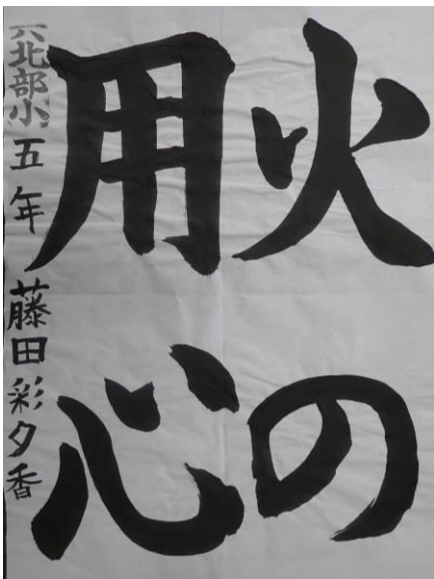 火の
用心
六北部小 五年 藤田彩夕香